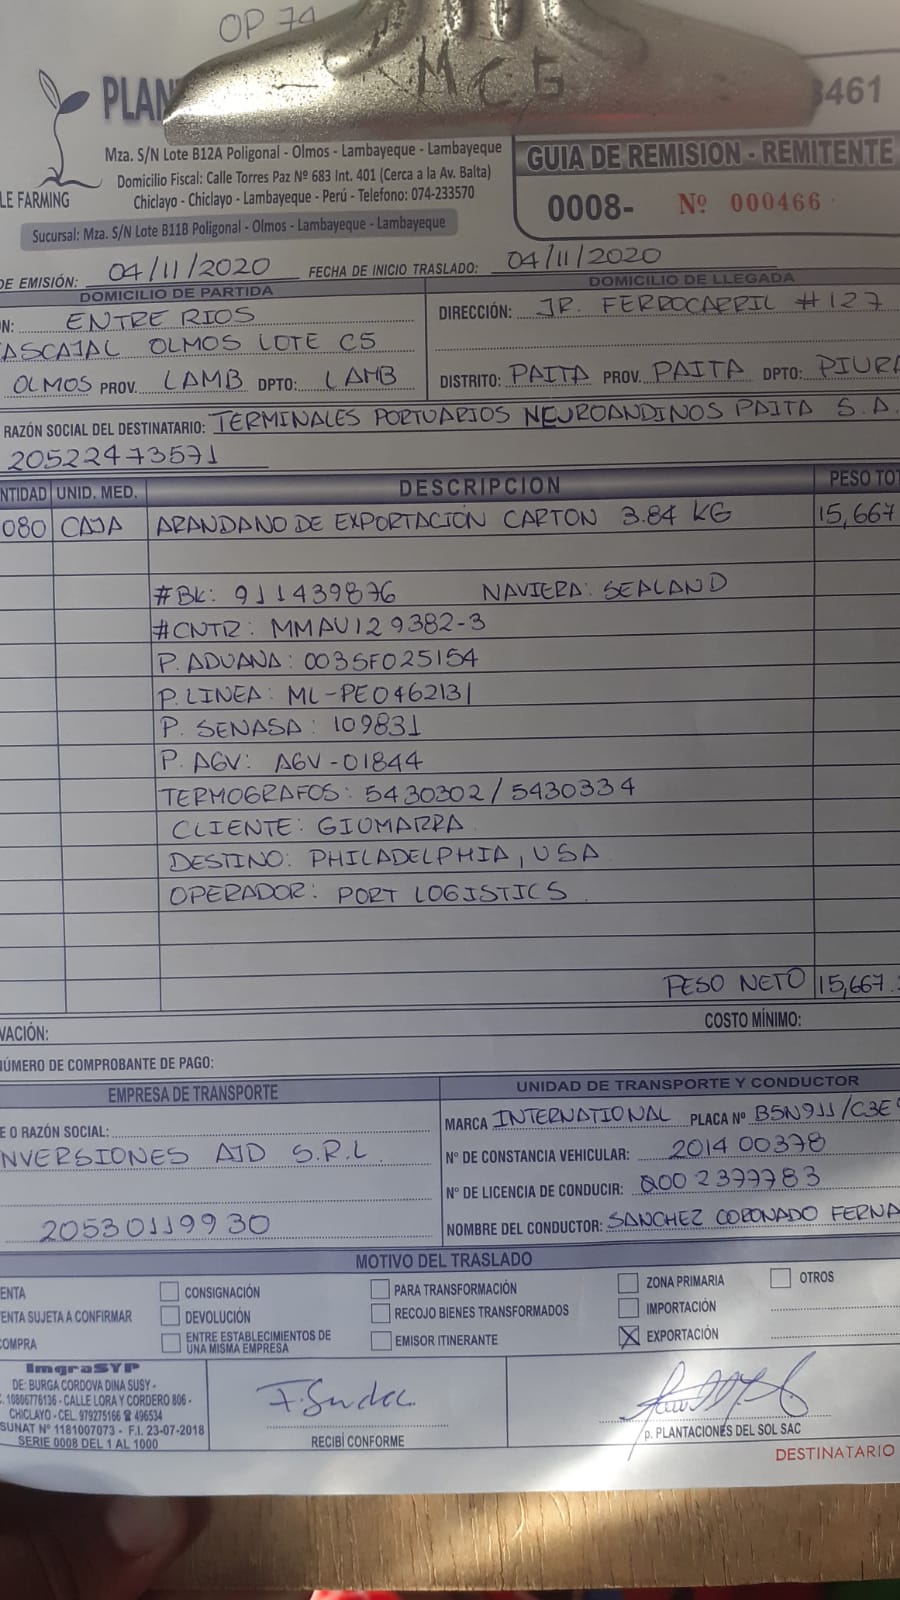 OP 74
MCG
PLAN
3461
Mza. S/N Lote B12A Poligonal - Olmos - Lambayeque - Lambayeque
Domicilio Fiscal: Calle Torres Paz Nº 683 Int. 401 (Cerca a la Av. Balta)
Chiclayo - Chiclayo - Lambayeque - Perú - Telefono: 074-233570
LE FARMING
Sucursal: Mza. S/N Lote B11B Poligonal - Olmos - Lambayeque - Lambayeque
GUIA DE REMISION - REMITENTE
0008- Nº 000466
DE EMISIÓN: 04/11/2020 FECHA DE INICIO TRASLADO: 04/11/2020
DOMICILIO DE PARTIDA
DOMICILIO DE LLEGADA
N: ENTRE RIOS
ASCAJAL OLMOS LOTE C5
OLMOS PROV. LAMB DPTO: LAMB
DIRECCIÓN: JR. FERROCARRIL #127
DISTRITO: PAITA PROV. PAITA DPTO: PIURA
RAZÓN SOCIAL DEL DESTINATARIO: TERMINALES PORTUARIOS NEUROANDINOS PAITA S.A.
20522473571
NTIDAD UNID. MED. DESCRIPCION PESO TOT
080 CAJA ARANDANO DE EXPORTACIÓN CARTON 3.84 KG 15,667
#BK: 911439876 NAVIERA: SEALAND
#CNTR: MMAU129382-3
P. ADUANA: 003SF025154
P. LINEA: ML-PE0462131
P. SENASA: 109831
P. AGV: AGV-01844
TERMOGRAFOS: 5430302/5430334
CLIENTE: GIUMARRA
DESTINO: PHILADELPHIA, USA
OPERADOR: PORT LOGISTICS
PESO NETO 15,667.
VACIÓN: COSTO MÍNIMO:
NÚMERO DE COMPROBANTE DE PAGO:
EMPRESA DE TRANSPORTE
E O RAZÓN SOCIAL:
NVERSIONES AJD S.R.L
20530119930
UNIDAD DE TRANSPORTE Y CONDUCTOR
MARCA INTERNATIONAL PLACA Nº B5N911/C3E
Nº DE CONSTANCIA VEHICULAR: 2014 00378
Nº DE LICENCIA DE CONDUCIR: Q002377783
NOMBRE DEL CONDUCTOR: SANCHEZ CORONADO FERNA
MOTIVO DEL TRASLADO
ENTA
ENTA SUJETA A CONFIRMAR
COMPRA
CONSIGNACIÓN
DEVOLUCIÓN
ENTRE ESTABLECIMIENTOS DE
UNA MISMA EMPRESA
PARA TRANSFORMACIÓN
RECOJO BIENES TRANSFORMADOS
EMISOR ITINERANTE
ZONA PRIMARIA
IMPORTACIÓN
X EXPORTACIÓN
OTROS
ImgraSYP
DE: BURGA CORDOVA DINA SUSY -
. 10806776136 - CALLE LORA Y CORDERO 806 -
CHICLAYO - CEL. 979275166 ☎ 496534
SUNAT Nº 1181007073 - F.I. 23-07-2018
SERIE 0008 DEL 1 AL 1000
RECIBÍ CONFORME
p. PLANTACIONES DEL SOL SAC
DESTINATARIO